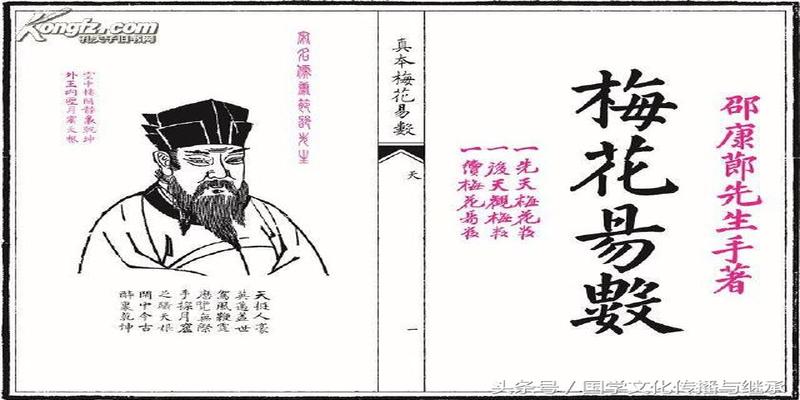 邵康節先生手著
梅花易數
一先天梅花數
一後天觀梅數
真本梅花易數
天
一
宋名儒康節邵先生
空中樓閣醉裏乾坤
外王內聖月窟天根
天挺人豪
英邁蓋世
駕風鞭霆
歷覽無際
手探月窟
足躡天根
閒中今古
醉裏乾坤
Kongfz.com
孔夫子旧书网
头条号/国学文化传播与继承